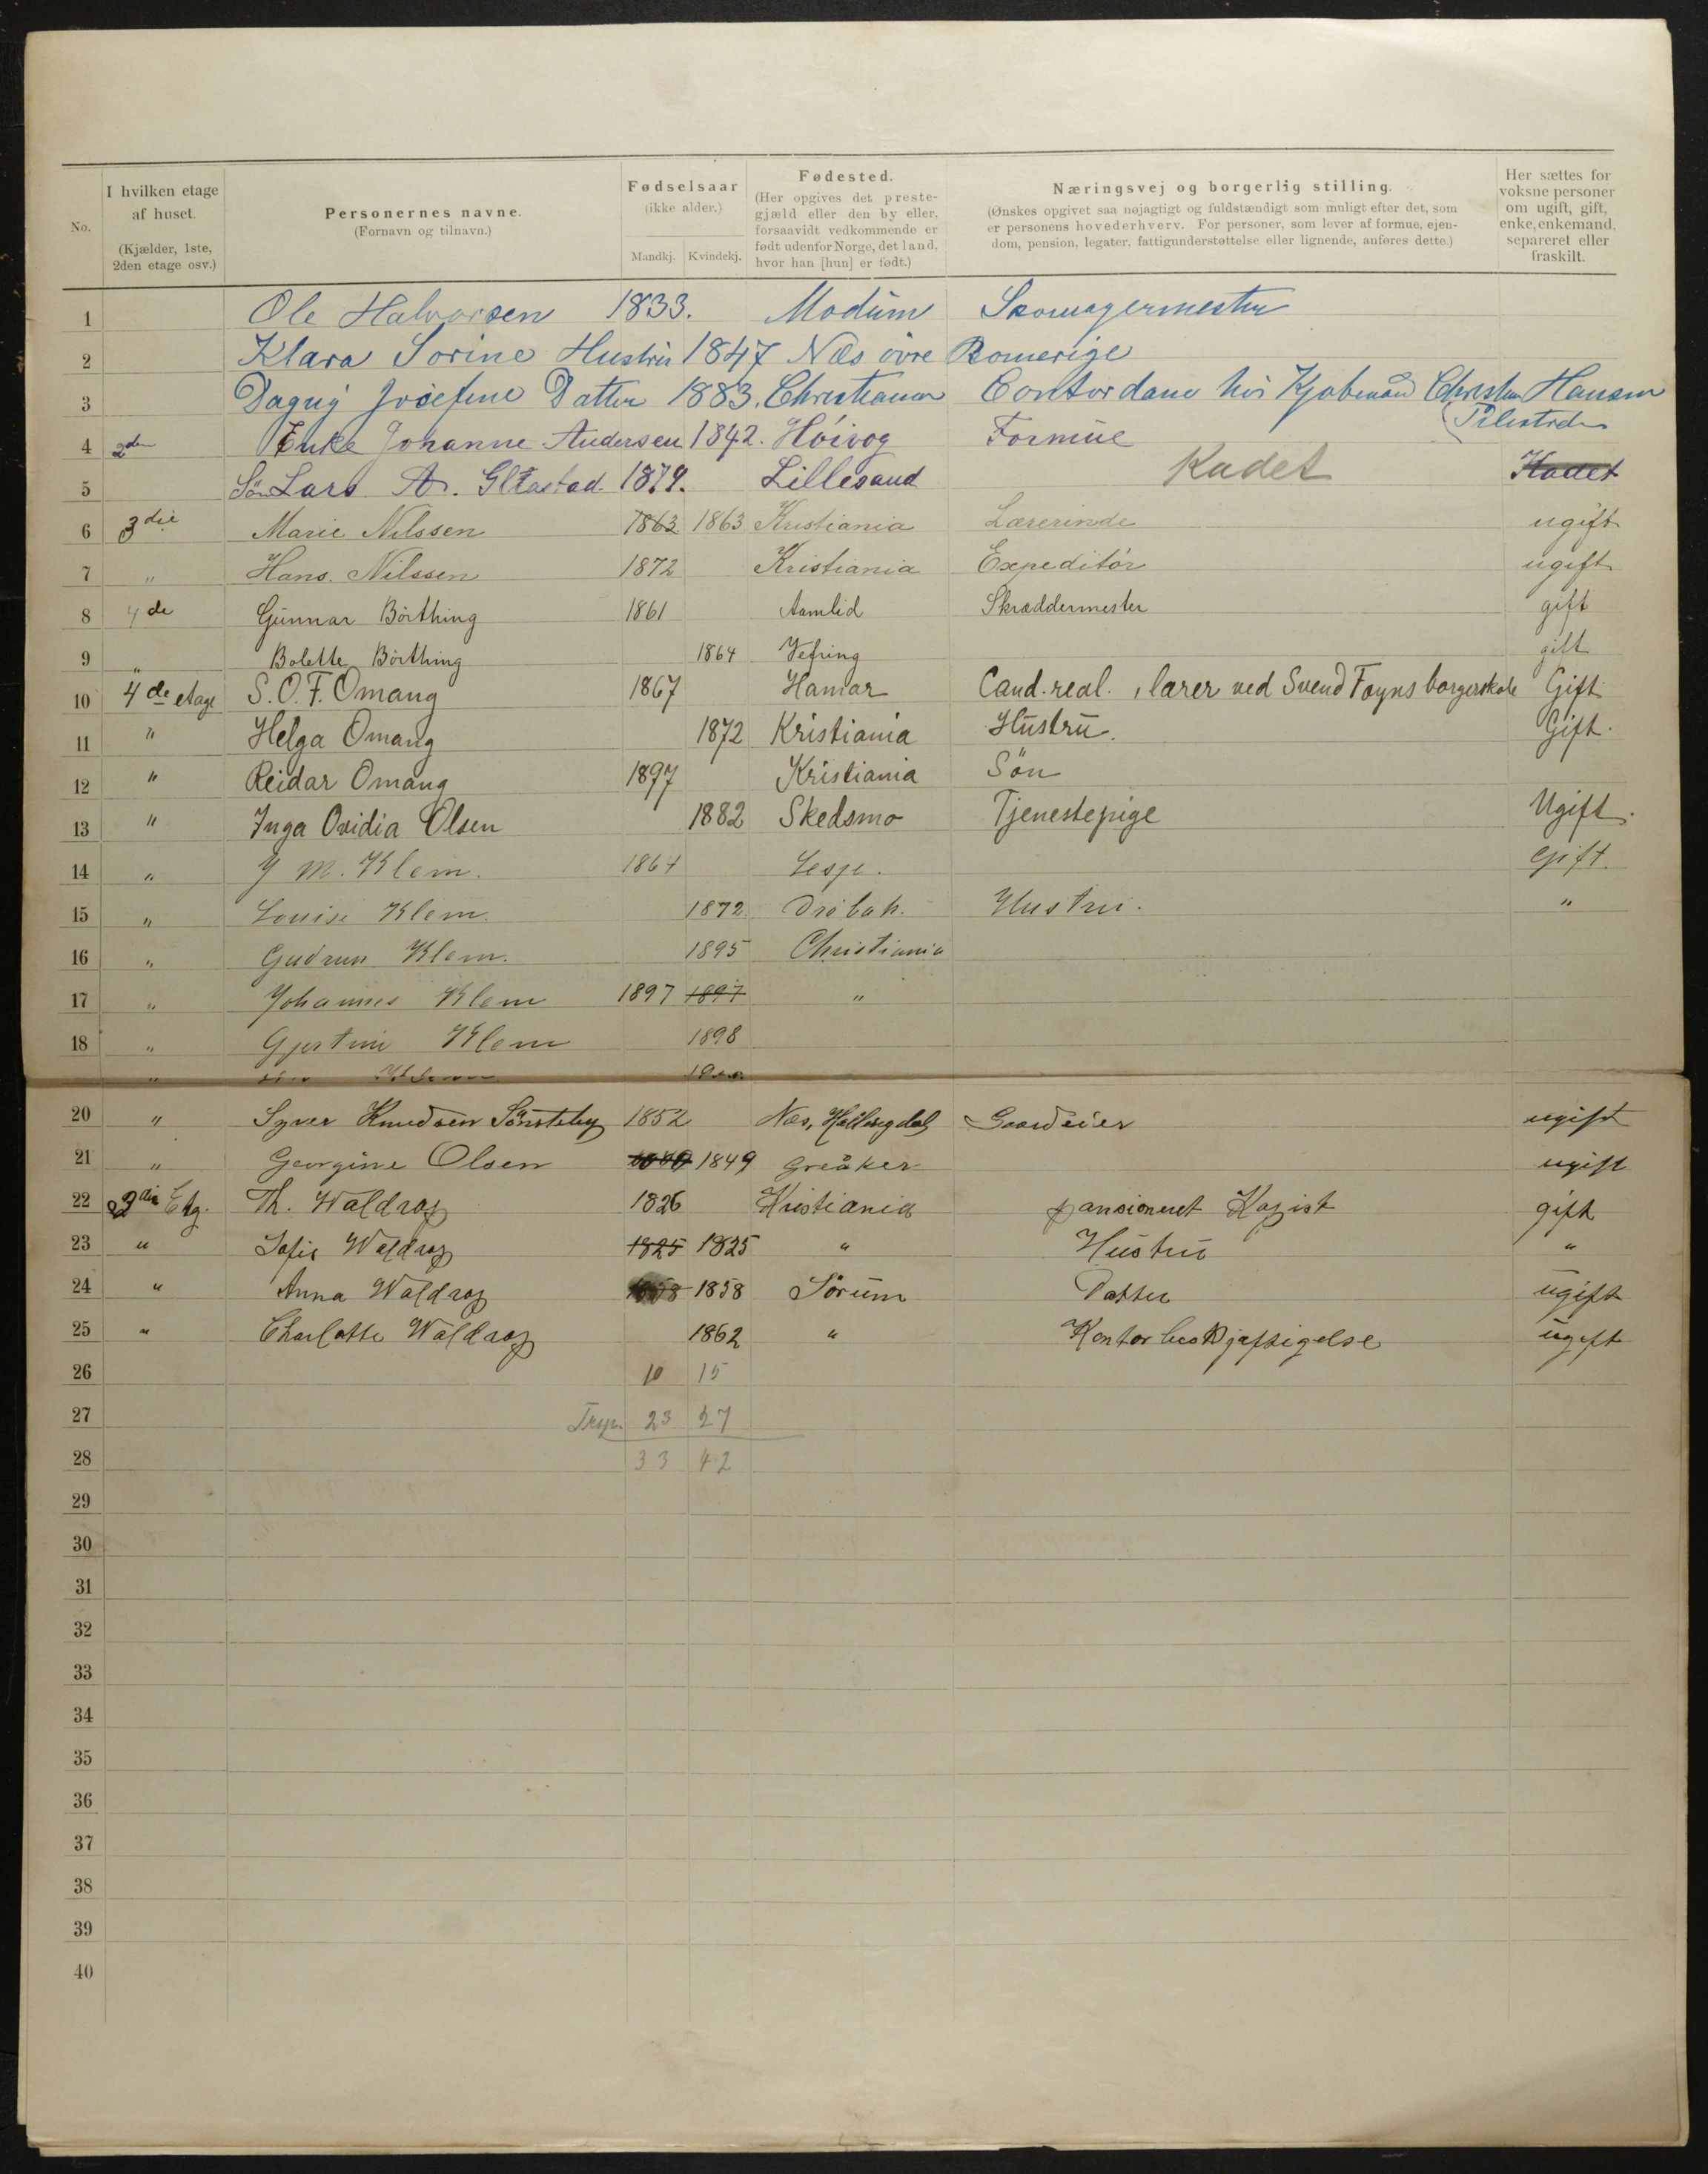 No.
I hvilken etage af huset.
(Kjælder, 1ste, 2den etage osv.)
Personernes navne.
(Fornavn og tilnavn.)
Fødselsaar
(ikke alder.)
Mandkj. Kvindekj.
Fødested.
(Her opgives det prestegjæld eller den by eller, forsaavidt vedkommende er født udenfor Norge, det land, hvor han [hun] er født.)
Næringsvej og borgerlig stilling.
(Ønskes opgivet saa nøjagtigt og fuldstændigt som muligt efter det, som er personens hovederhverv. For personer, som lever af formue, ejendom, pension, legater, fattigunderstøttelse eller lignende, anføres dette.)
Her sættes for voksne personer om ugift, gift, enke, enkemand, separeret eller fraskilt.
1 Ole Halvorsen 1833. Modum Skomagermester
2 Klara Sorine Hustru 1847 Næs øvre Romerige
3 Dagny Josefine Datter 1883. Christiania Contordame hos Kjøbmand Christian Hansen
4 2den Enke Johanne Andersen 1842. Høivog Formue
5 Søn Lars A. 1879. Lillesand Kadet Kadet
6 3die Marie Nilssen 1863 1863 Kristiania Lærerinde ugift
7 " Hans. Nilssen 1872 Kristiania Expeditør ugift
8 4de Gunnar Børthing 1861 Aamlid Skræddermester gift
9 " Bolette Børthing 1864 Vefring gift
10 4de etage S. O. F. Omang 1867 Hamar Cand. real. , lærer ved Svend Foyns borgerskole Gift
11 " Helga Omang 1872 Kristiania Hustru. Gift.
12 " Reidar Omang 1897 Kristiania Søn
13 " Inga Ovidia Olsen 1882 Skedsmo Tjenestepige Ugift.
14 " J M. Klem. 1864 Lesje. Gift.
15 " Louise Klem. 1872 Drøbak. Hustru. "
16 " Gudrun Klem. 1895 Christiania
17 " Johannes Klem 1897 1897 "
18 " Gjertine Klem 1898
" Klem
20 " Syver Knudsen Sønsteby 1852 Næs, Hallingdal Gaardeier ugift
21 " Georgine Olsen 1849 Greåker ugift
22 3die Etg. Th. Waldrop 1826 Kristiania pansioneret Kopist gift
23 " Sofie Waldrop 1825 1825 " Hustru "
24 " Anna Waldrop 1858 1858 Sørum Datter ugift
25 " Charlotte Waldrop 1862 " Kontorbeskjæftigelse ugift
26 10 15
27 23 27
28 33 42
29
30
31
32
33
34
35
36
37
38
39
40